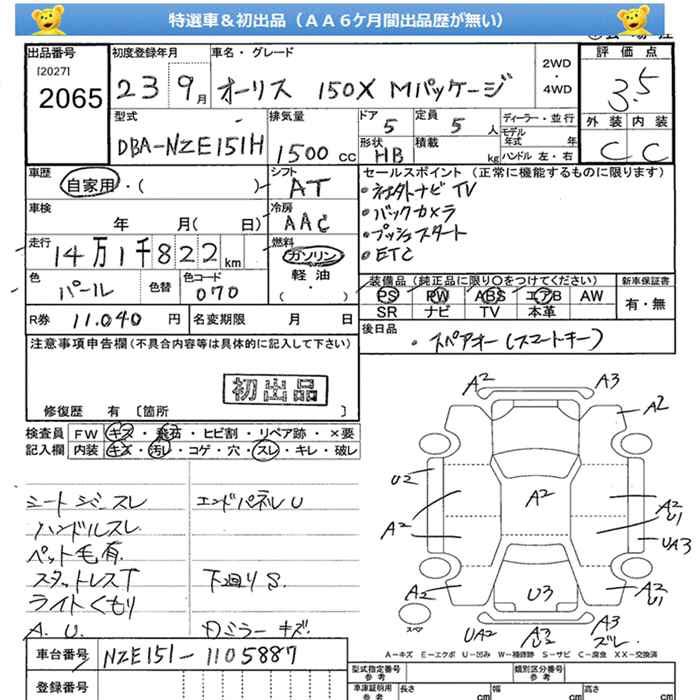 特選車＆初出品（ＡＡ６ケ月間出品歴が無い）
出品番号 初度登録年月 車名・グレード 評価点
[2027]
2065 23 9月 オーリス 150X Mパッケージ 2WD・4WD 3.5
型式 排気量 ドア 定員 ディーラー・並行 外装 内装
DBA-NZE151H 1500cc 5 5人 モデル年式 年 C C
形状 積載 ハンドル 左・右
HB kg
車歴 シフト セールスポイント（正常に機能するものに限ります）
自家用・( ) AT ・社外ナビ TV
車検 冷房 ・バックカメラ
年 月( 日) AAC ・プッシュスタート
走行 燃料 ・ETC
14万1千822km ガソリン
軽油
( ・ )
色 色替 色コード 装備品（純正品に限り○をつけてください） 新車保証書
パール 070 PS PW ABS エアB AW 有・無
SR ナビ TV 本革
R券 11.040円 名変期限 月 日 後日品
・スペアキー(スマートキー)
注意事項申告欄(不具合内容等は具体的に記入して下さい)
初出品
修復歴 有 〔箇所 〕
検査員 FW キズ・飛石・ヒビ割・リペア跡・×要
記入欄 内装 キズ・汚レ・コゲ・穴・スレ・キレ・破レ
シート シミ スレ エンドパネル U
ハンドルスレ
ペット毛有
スタットレスT 下廻り S.
ライトくもり
A. U. Dミラーキズ.
A2 A3
A2
U2
A2
A2 A2
U1
UA3
A2 U3 A2
U1
スペア UA2 A3
U2 A3
ズレ.
A－キズ E－エクボ U－凹み W－補修跡 S－サビ C－腐食 XX－交換済
車台番号 NZE151-1105887
登録番号
型式指定番号 参考 類別区分番号 参考
車庫証明用 参考 長さ cm 幅 cm 高さ cm